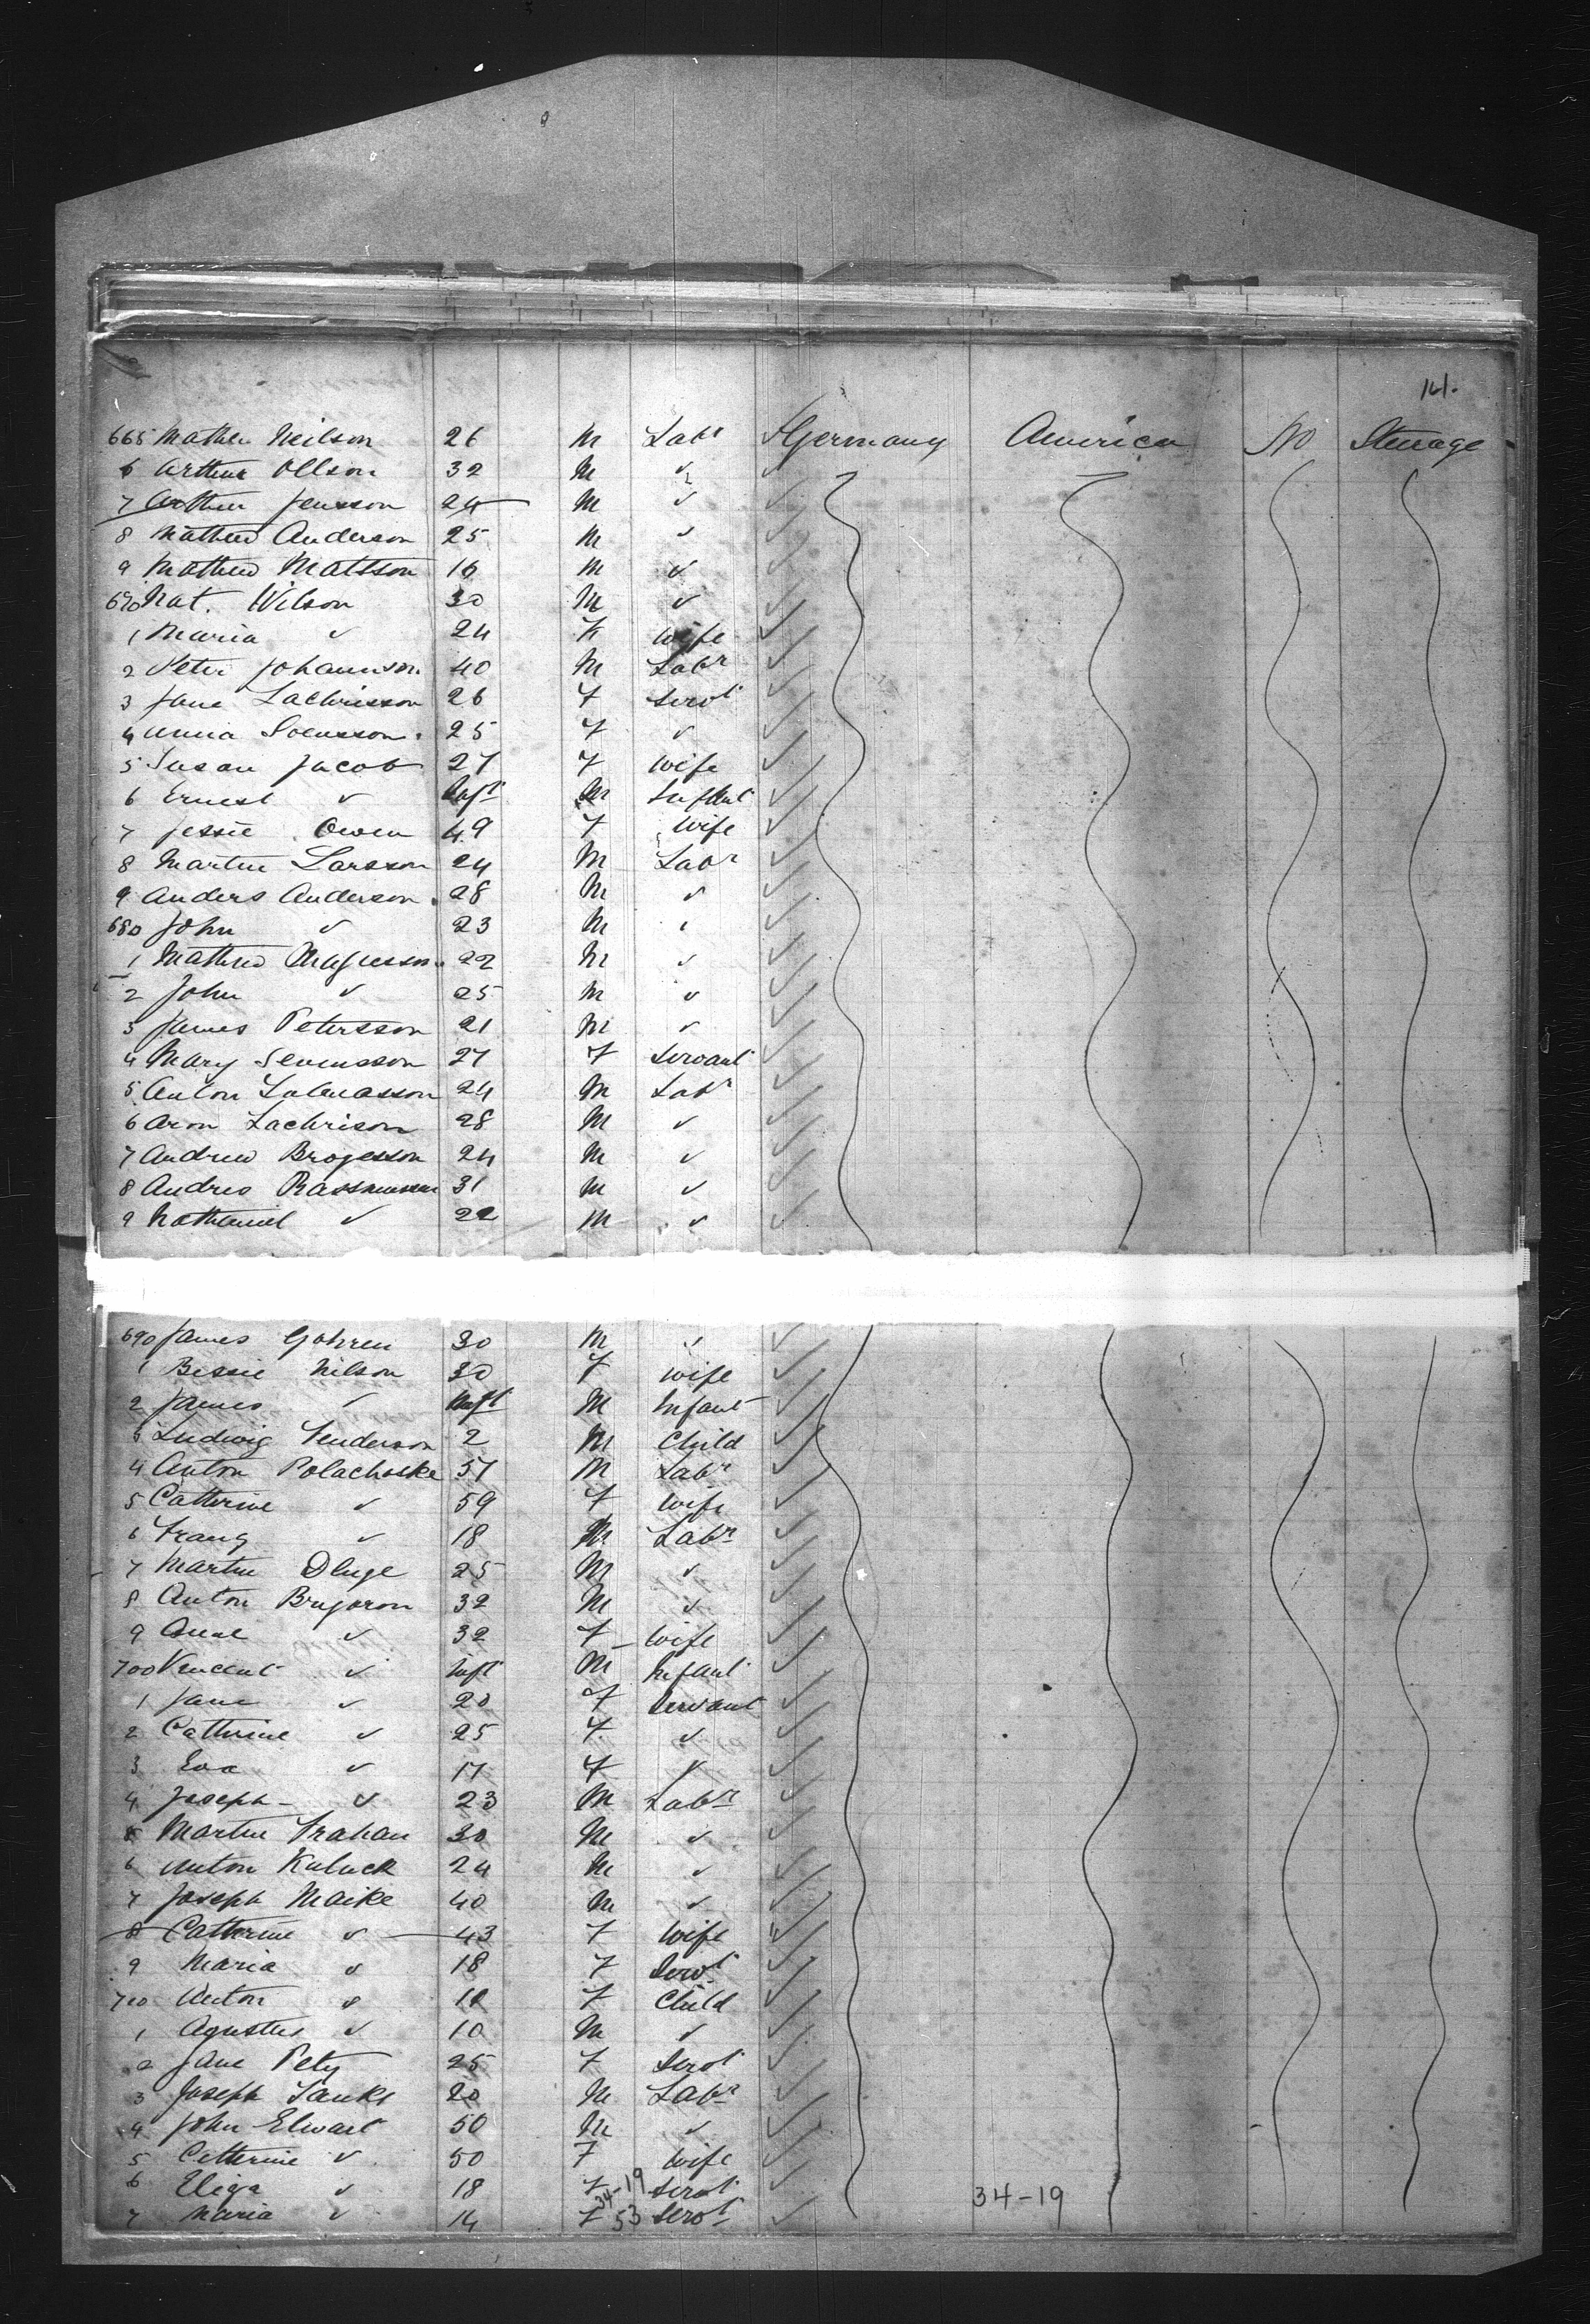 14.
665 Mathew Neilson 26 M Labr Germany America No Steerage
6 Arthur Ollson 32 M ✓ ✓
7 Arthur Jensson 24 M ✓ ✓
8 Mathew Anderson 25 M ✓ ✓
9 Mathew Mattson 16 M ✓ ✓
670 Nat. Wilson 30 M ✓ ✓
1 Maria ✓ 24 F Wife ✓
2 Peter Johannson 40 M Labr ✓
3 Jane Lachrisson 26 F Servt ✓
4 Anna Svensson 25 F ✓ ✓
5 Susan Jacob 27 F Wife ✓
6 Ernest ✓ Inft M Infant ✓
7 Jessie Owen 49 F Wife ✓
8 Martin Larsson 24 M Labr ✓
9 Anders Anderson 28 M ✓ ✓
680 John ✓ 23 M ✓ ✓
1 Mathew Magnesson 22 M ✓ ✓
2 John ✓ 25 M ✓ ✓
3 James Petersson 21 M ✓ ✓
4 Mary 27 F Servant ✓
5 Anton 24 M Labr ✓
6 Aron Lachrison 28 M ✓ ✓
7 Andrew Brogesson 24 M ✓ ✓
8 Andres Rassmussen 31 M ✓ ✓
9 Nathaniel ✓ 22 M ✓ ✓
690 James Gohren 30 M ✓ ✓
1 Bessie Nilson 30 F Wife ✓
2 James ✓ Inft M Infant ✓
3 Ludwig Fenderson 2 M Child ✓
4 Anton Polachoske 57 M Labr ✓
5 Catherine ✓ 59 F Wife ✓
6 Franz ✓ 18 M Labr ✓
7 Martin Dluge 25 M ✓ ✓
8 Anton Brujoron 32 M ✓ ✓
9 Anne ✓ 32 F Wife ✓
700 Vincent ✓ Inft M Infant ✓
1 Jane ✓ 20 F Servant ✓
2 Catherine ✓ 25 F ✓ ✓
3 Eva ✓ 17 F ✓ ✓
4 Joseph ✓ 23 M Labr ✓
5 Martin Frahan 30 M ✓ ✓
6 Anton Kuluck 24 M ✓ ✓
7 Joseph Maike 40 M ✓ ✓
8 Catherine ✓ 43 F Wife ✓
9 Maria ✓ 18 F Servt ✓
710 Anton ✓ 11 F Child ✓
1 Agustus ✓ 10 M ✓ ✓
2 Jane Pety 25 F Servt ✓
3 Joseph Sanke 20 M Labr ✓
4 John Elwart 50 M ✓ ✓
5 Catherine ✓ 50 F Wife ✓
6 Eliza ✓ 18 F Servt ✓
34-19 34-19
7 Maria ✓ 14 F 53 Servt ✓